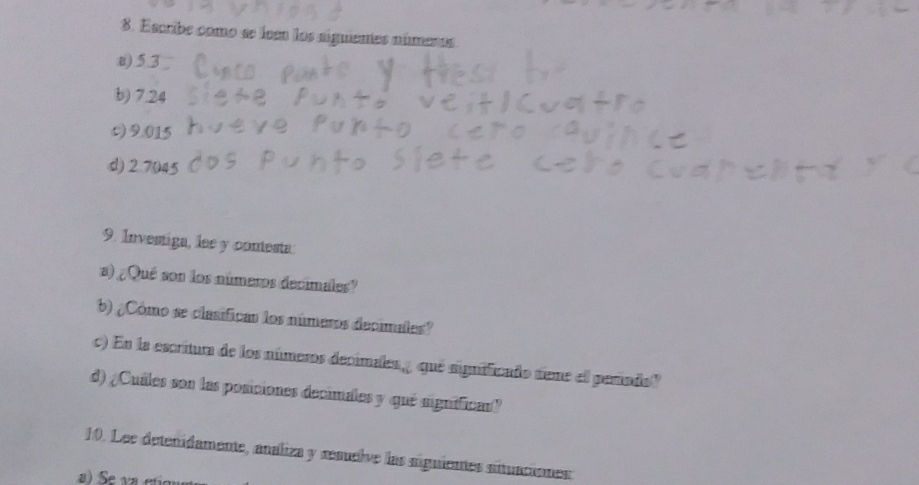 8. Escribe como se leen los siguientes números.
a) 5.3 Cinco punto y tres
b) 7.24 siete punto veiticuatro
c) 9.015 nueve punto cero quince
d) 2.7045 dos punto siete cero cuarenta y
9. Investiga, lee y contesta:
a) ¿Qué son los números decimales?
b) ¿Cómo se clasifican los números decimales?
c) En la escritura de los números decimales,¿ qué significado tiene el periodo?
d) ¿Cuáles son las posiciones decimales y qué significan?
10. Lee detenidamente, analiza y resuelve las siguientes situaciones:
a) Se va